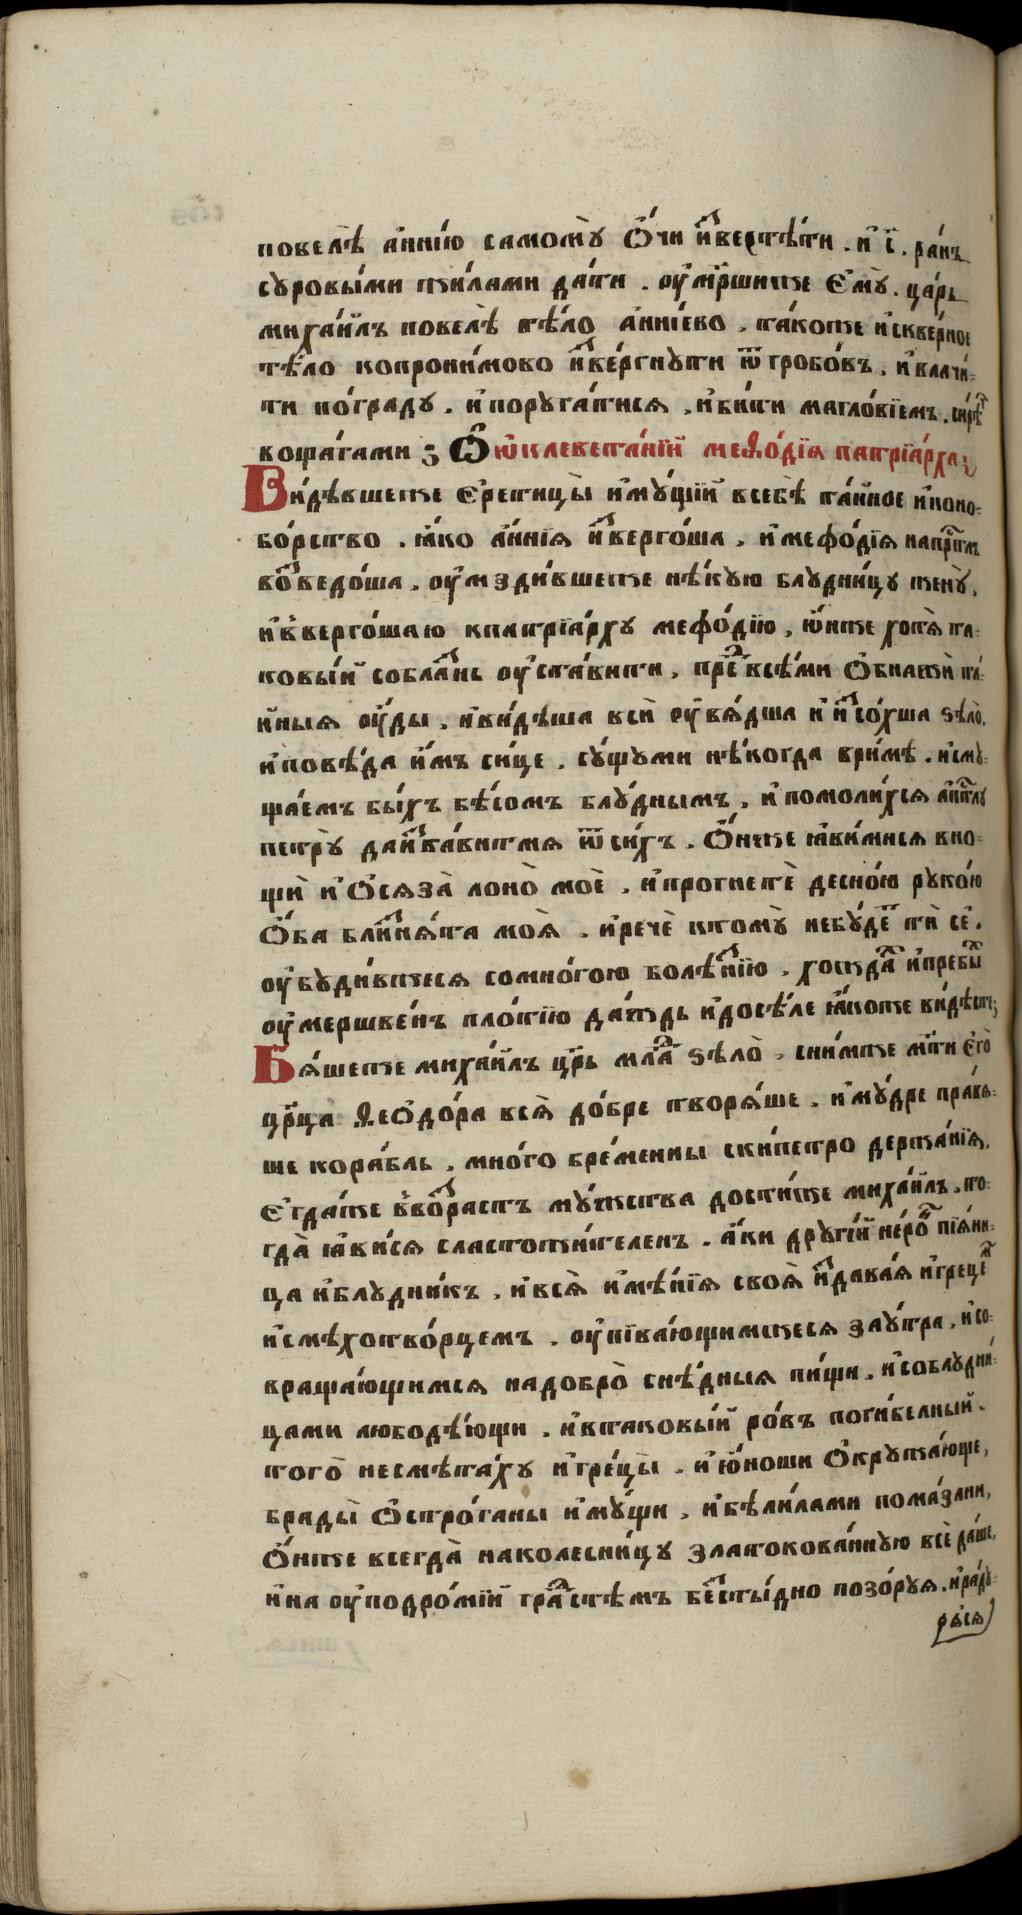 повелѣ̀ а҆ннїю самомꙋ̀ ѻ҆́чи и҆звертѣ́ти . и҆ і҃ . ра́нъ
сꙋровы́ми жи́лами да́ти . ᲂу҆ме́ршиже є҆мꙋ̀ . ца́рь
миха́илъ повелѣ̀ тѣ́ло а҆ннїево , та́коже и҆скве́рное
тѣ́ло копрони́мово и҆зве́ргнꙋти ѿ гробо́въ . и҆ влачи́-
ти погра́дꙋ . и҆ порꙋга́тися , и҆ би́ти магло́вїемъ . си́рѣⷱ
кощага́ми ; Ѽ ѡ҆клевета́нїй меѳо́дїѧ патрїа́рха ;
Ви́дѣвшеже є҆ретицы̀ и҆мꙋ́щїй всебѣ̀ та́йное и҆коно-
бо́рство . ꙗ҆́ко а҆́ннїя и҆зверго́ша , и҆ мефо́дїя напрⷭ҇тлъ
возведо́ша . ᲂу҆мзди́вшеже нѣ́кꙋю блꙋдни́цꙋ женꙋ̀ ,
и҆ вверго́шаю кпатрїа́рхꙋ мефо́дїю , ѡ҆́нже хотя̀ та-
ковы́й собла́знь ᲂу҆ста́вити , преⷣ всѣ́ми ѻ҆бнажѝ та́-
йныя ᲂу҆́ды . и҆ ви́дѣша всѝ ᲂу҆вя́дша и҆ и҆зсо́хша ѕѣлѡ̀ .
и҆ повѣ́да и҆́мъ си́це , сꙋ́щꙋми нѣ́когда ври́мѣ . и҆ смꙋ-
ща́емъ бы́хъ бѣ́сомъ блꙋ́днымъ , и҆ помоли́хся а҆пⷭ҇лꙋ
петрꙋ̀ да и҆зба́витмя ѿ си́хъ . ѻ҆́нже ꙗ҆ви́мися вно-
щѝ и҆ ѻ҆сяза̀ лоно̀ моѐ , и҆ прогнетѐ десно́ю рꙋко́ю
ѻ҆́ба близня́та моя̀ . и҆ речѐ ктомꙋ̀ небꙋ́деⷮ тѝ се .
ᲂу҆бꙋди́вжеся сомно́гою болѣ́знїю , хождаⷯ и҆ пребыⷯ
ᲂу҆мерщве́нъ пло́тїю да́ждь и҆ досѣ́ле ꙗ҆́коже ви́дѣте ;
Бя́шеже миха́илъ цр҃ь млаⷣ ѕѣлѡ̀ , снимже мт҃и є҆го̀
цр҃ца ѳеѻдо́ра вся̀ до́бре творя́ше . и҆ мꙋ́дре пра́вя-
ше кора́бль , мно́го бре́менны скипетро держа́нїя .
є҆гда́же в во́зрастъ мꙋ́жства дости́же миха́илъ . то-
гда̀ ꙗ҆ви́ся сластожи́телен . а҆́ки дрꙋгі́й неро́нъ пїяни-
ца и҆ блꙋдни́къ , и҆ вся̀ и҆мѣ́нїя своя̀ и҆здава́я и҆грецеⷨ
и҆ смѣхотво́рцемъ . ᲂу҆пїва́ющимжеся заꙋ́тра , и҆ со-
враща́ющимся надобро̀ снѣ́дныя пи́щи . и҆ соблꙋдни́-
цами любодѣ́ющи . и҆ втаковы́й ро́въ поги́белный .
того̀ несмѣта́хꙋ и҆гре́цы̀ . и҆ ю҆́ноши ѻ҆крꙋжа́юще ,
брады̀ ѻ҆стро́ганы и҆мꙋ́щи , и҆ бѣли́лами пома́зани ,
ѻ҆́нже всегда̀ наколесни́цꙋ златокова́ннꙋю всѣда́ше ,
и҆ на ᲂу҆подро́мїй гра́дстѣмъ безсты́дно позо́рꙋя . и҆ ра́дꙋ-
ряся